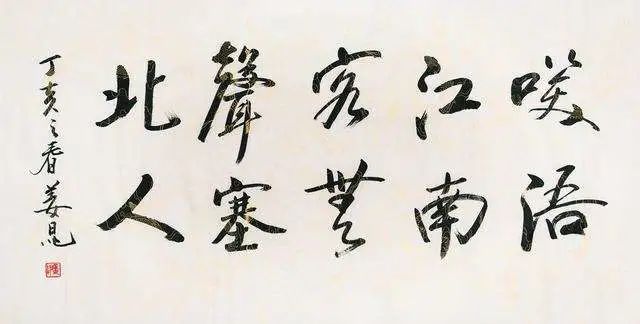 咲语
江南
客無
聲塞
北人
丁亥之春姜昆